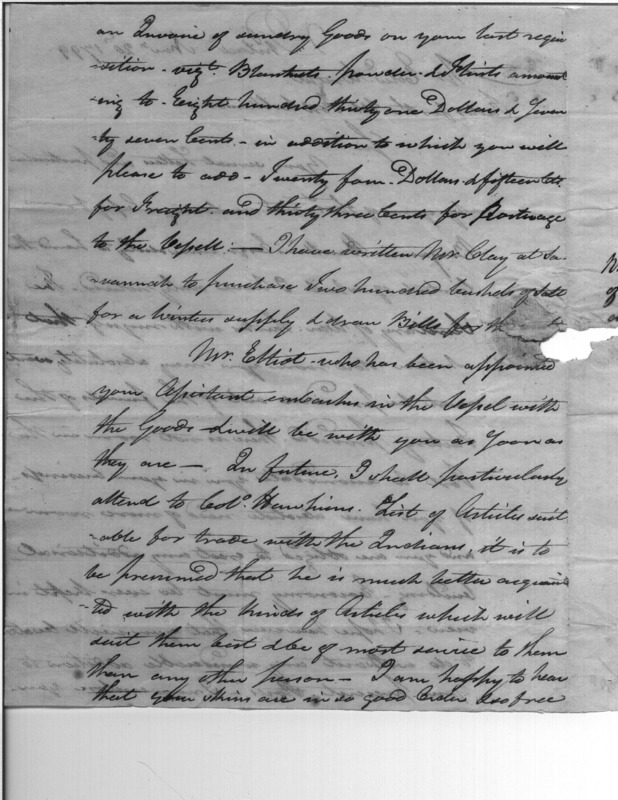 an Invoice of sundry Goods on your last requi
sition - vizt. Blankets. powder. & Flints amount
ing to - Eight hundred thirty one Dollars & Seven
ty seven Cents. - in addition to which you will
please to add - Twenty four - Dollars & fifteen Cts.
for Freight. and thirty three Cents for Portivage
to the Vessell: — I have written Mr. Clay at Sa-
vannah to purchase Two hundred bushels of Salt
for a Winters supply & draw Bills for the
Mr. Elliot - who has been appointed
your Assistant embarks in the Vessel with
the Goods & will be with you as Soon as
they are —. In future, I shall particularly
attend to Colo. Hawkins. List of Articles suit
-able for trade with the Indians, it is to
be presumed that he is much better acquain
ted with the kinds of Articles which will
suit them best & be of most service to them
than any other person — I am happy to hear
that your skins are in so good Order & so free